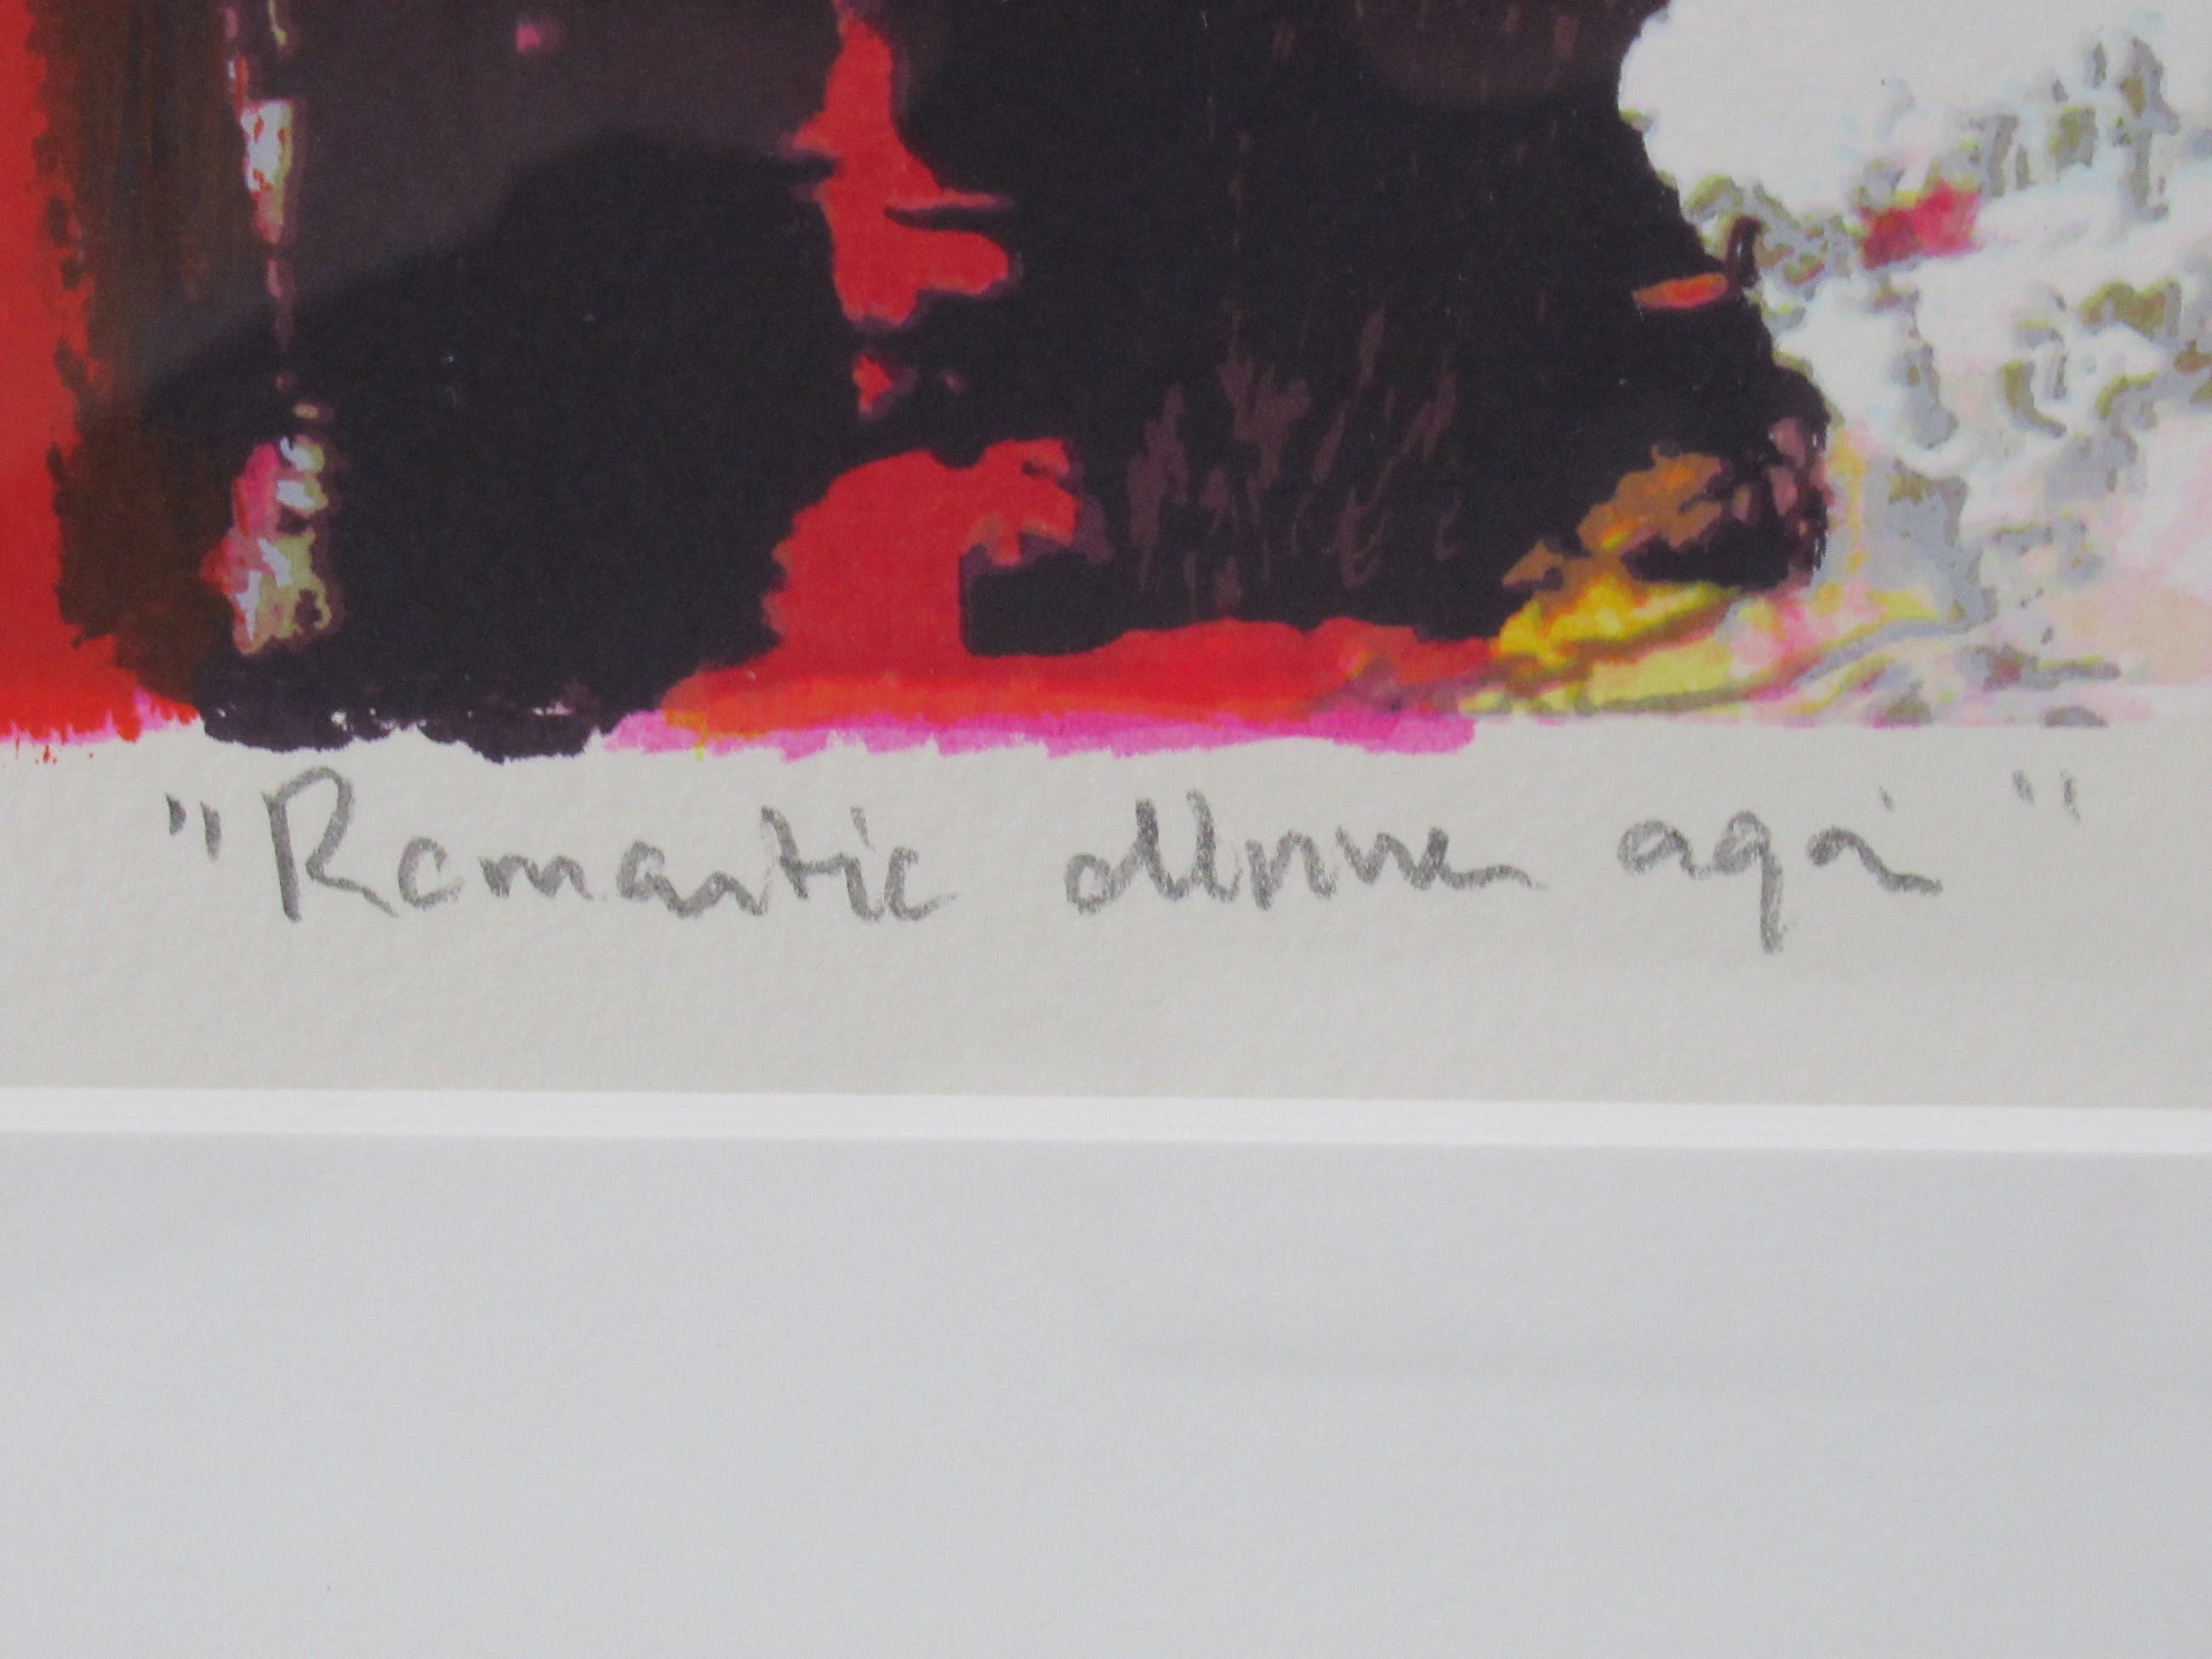 "Romantic dinner agai"